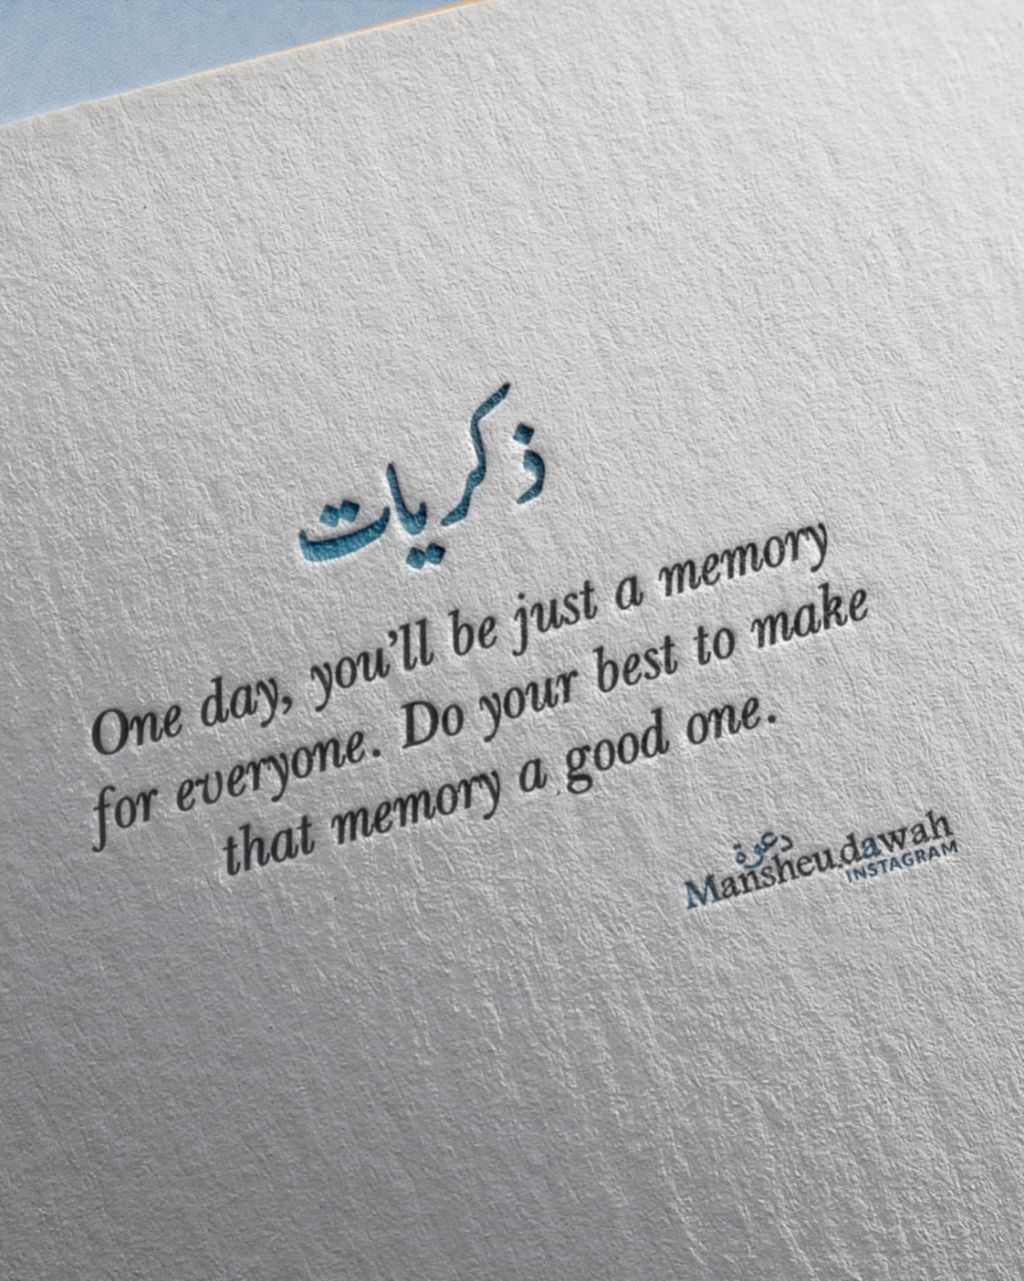 ذكريات
One day, you’ll be just a memory
for everyone. Do your best to make
that memory a good one.
دعوة
Mansheu.dawah
INSTAGRAM